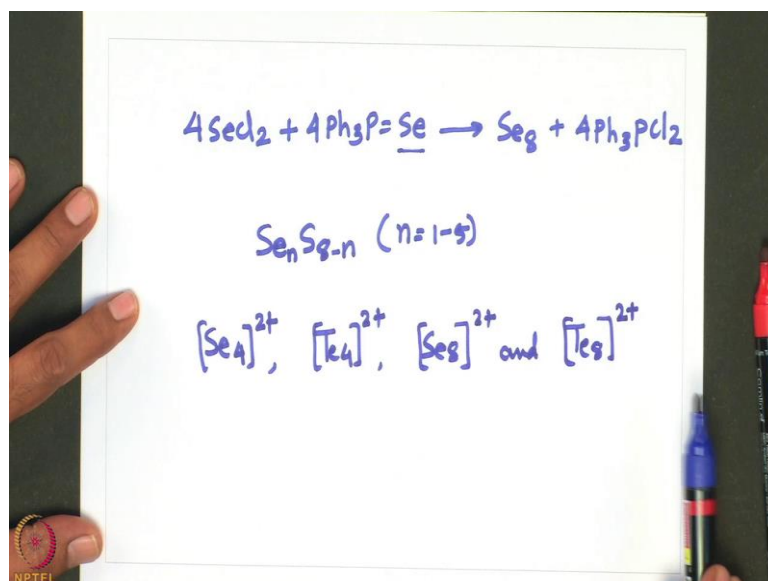 4SeCl₂ + 4Ph₃P=Se → Se₈ + 4Ph₃PCl₂
SeₙS₈₋ₙ (n=1-5)
[Se₄]²⁺, [Te₄]²⁺, [Se₈]²⁺ and [Te₈]²⁺
NPTEL